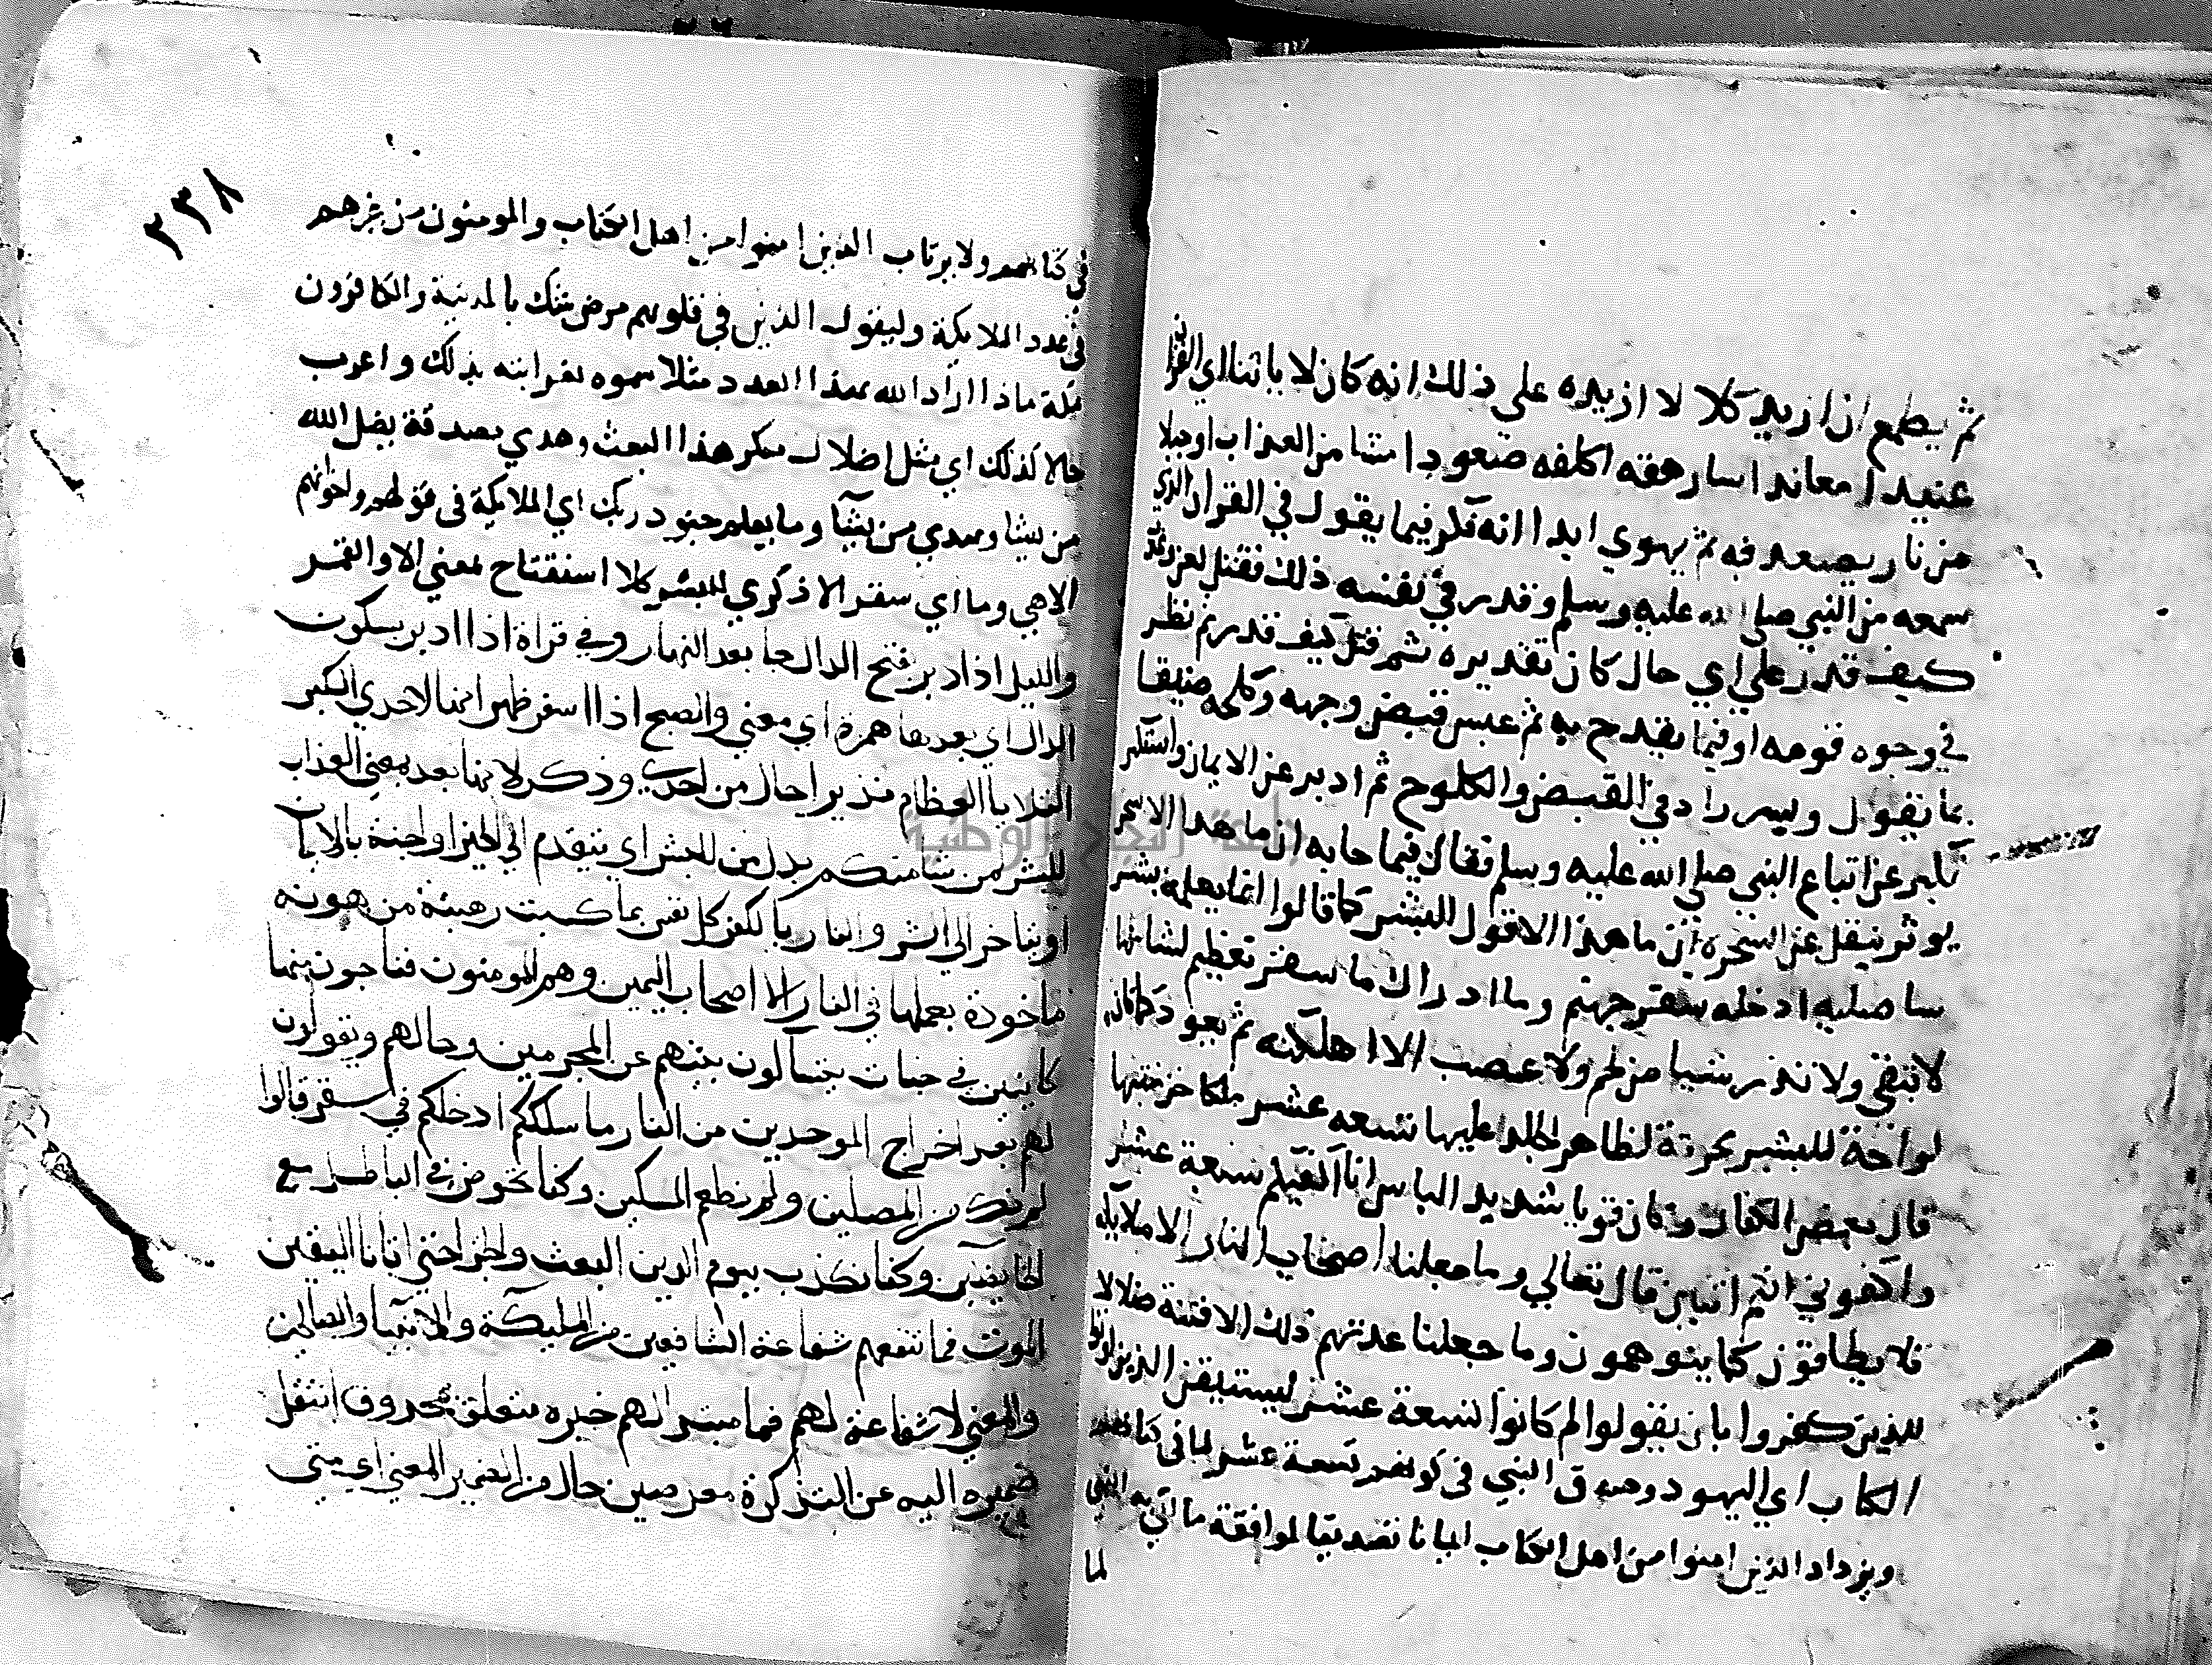 ثم يطمع ان ازيد كلا لا ازيده على ذلك انه كان لاياتنا اي القران
عنيدا معاندا سارهقه اكلفه صعودا مشقة من العذاب او جبلا
من نار يصعد فيه ثم يهوي ابدا انه فكر فيما يقول في القران الذي
سمعه من النبي صلى الله عليه وسلم وقدر في نفسه ذلك فقتل لعن وعذب
كيف قدر على اي حال كان تقديره ثم قتل كيف قدر ثم نظر
في وجوه قومه او فيما يقدح به ثم عبس قبض وجهه وكلحه ضيقا
بما يقول وبسر زاد في القبض والكلوح ثم ادبر عن الايمان واستكبر
تكبر عن اتباع النبي صلى الله عليه وسلم فقال فيما جا به ان ما هذا الا سحر
يوثر ينقل عن السحرة ان ما هذا الا قول البشر كما قالوا انما يعلمه بشر
ساصليه ادخله سقر جهنم وما ادراك ما سقر تعظيم لشانها
لا تبقي ولا تذر شيا من لحم ولا عصب الا اهلكته ثم يعود كما كان
لواحة للبشر محرقة لظاهر الجلد عليها تسعه عشر ملكا خزنتها
قال بعض الكفار وكان قويا شديد الباس انا اكفيكم سبعة عشر
واكفوني انتم اثنين قال تعالي وما جعلنا اصحاب النار الا ملايكة
فلا يطاقون كما يتوهمون وما جعلنا عدتهم ذلك الا فتنة ضلالا
للذين كفروا بان يقولوا لم كانوا تسعة عشر ليستيقن الذين اوتوا
الكتاب اي اليهود صدق النبي في كونهم تسعة عشر لما في كتابهم
ويزداد الذين امنوا من اهل الكتاب ايمانا تصديقا لموافقة ما اتي به النبي
لما
٢٣٨
في كتابهم ولا يرتاب الذين امنوا من اهل الكتاب والمومنون من غيرهم
في عدد الملايكة وليقول الذين في قلوبهم مرض شك بالمدنية والكافرون
بمكة ماذا اراد الله بهذا العدد مثلا سموه لغرابته بذلك واعرب
حالا كذلك اي مثل اضلال منكر هذا البعث وهدي مصدقة يضل الله
من يشا ويهدي من يشا وما يعلم جنود ربك اي الملايكة في قوتهم واعوانهم
الا هي وما اي سقر الا ذكري للبشر كلا استفتاح بمعني الا والقمر
والليل اذا دبر بفتح الدال جا بعد النهار وفي قراة اذا ادبر بسكون
الدال اي بعدها همزة اي معني والصبح اذا اسفر ظهر انها لاحدي الكبر
البلايا العظام نذيرا حال من احدي وذكر لانها بعد بمعني العذاب
للبشر لمن شا منكم بدل من للبشر اي يتقدم الي الخير او الجنة بالايمان
او يتاخر الي الشر والنار بالكفر كل نفس بما كسبت رهينة مرهونه
ماخوذة بعملها في النار الا اصحاب اليمين وهم المومنون فناجون منها
كاينين في جنات يتسالون بينهم عن المجرمين وحالهم ويقولون
لهم بعد اخراج الموحدين من النار ما سلككم ادخلكم في سقر قالوا
لم نك من المصلين ولم نطعم المسكين وكنا نخوض في الباطل مع
الخايضين وكنا نكذب بيوم الدين البعث والجزا حتي اتانا اليقين
الموت فما تنفعهم شفاعة الشافعين من المليكة والانبيا والصالحين
والمعني لا شفاعة لهم فما مبتدا لهم خبره متعلق بمحذوف انتقل
ضميره اليه عن التذكرة معرضين حال من الضمير المعني اي شي
جامعة النجاح الوطنية